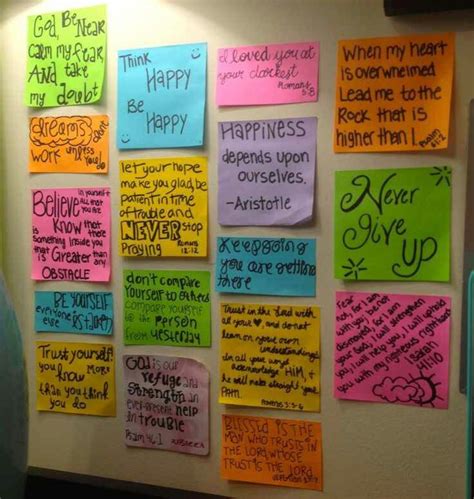 God, Be Near
calm my fear,
And take
my doubt
dreams don't
work unless
you do
Believe in yourself
and all that
You Are
Know that there
is something inside you
that is Greater than
any
OBSTACLE
BE YOURSELF
everyone
else is taken
Trust yourself
you Know
More
than you think
you do
Think
Happy
Be
Happy
let your hope
make you glad, be
patient in time
of trouble and
NEVER stop
Praying Romans
12:12
don't compare
yourself to others
compare yourself
to the person
from yesterday
God is our
refuge and
strength an
ever-present help
in trouble
Psalm 46:1
I loved you at
your darkest
Romans
5:8
HAPPINESS
depends upon
ourselves.
-Aristotle
Keep going
you are getting
there
Trust in the Lord with
all your ♥, and do not
lean on your own
understanding.
In all your ways
acknowledge HIM, &
he will make straight your
PAtH.
Proverbs 3:5-6
BLESSED IS THE
MAN WHO TRUSTS IN
THE LORD, WHOSE
TRUST IS THE LORD.
JEREMIAH 17:7
When my heart
is overwhelmed
Lead me to the
Rock that is
higher than I. Psalm
61:2
Never
give
up
Fear
not, for I am
with you; be not
dismayed, for I am
your God; I will strengthen
you, I will help you, I will uphold
you with my righteous right hand
Isaiah
41:10